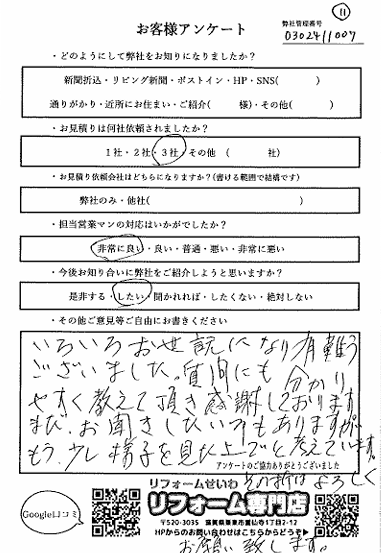 ⑪
お客様アンケート
弊社管理番号
0302411007
・どのようにして弊社をお知りになりましたか？
新聞折込・リビング新聞・ポストイン・HP・SNS(　　　)
通りがかり・近所にお住まい・ご紹介(　　様)・その他(　　　)
・お見積りは何社依頼されましたか？
1社・2社・3社・その他　(　　　社)
・お見積り依頼会社はどちらになりますか？(書ける範囲で結構です)
弊社のみ・他社(　　　　　　)
・担当営業マンの対応はいかがでしたか？
非常に良い・良い・普通・悪い・非常に悪い
・今後お知り合いに弊社をご紹介しようと思いますか？
是非する・したい・聞かれれば・したくない・絶対しない
・その他ご意見等ご自由にお書きください
いろいろお世話になり有難う
ございました。質問にも分かり
やすく教えて頂き感謝しております
また、お聞きしたい もありますが
もう少し様子を見た上でと考えています。
アンケートのご協力ありがとうございました
その折はよろしく
お願い致します。
Google口コミ
リフォームせいわ
リフォーム専門店
〒520-3035 滋賀県栗東市霊仙寺1丁目2-12
HPからのお問い合わせはこちらからどうぞ▶